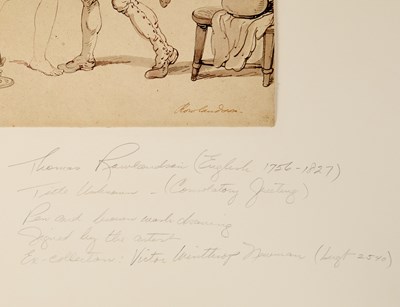 Rowlandson.
Thomas Rowlandson (English 1756-1827)
Title Unknown - (Comdatory Greeting)
Pen and brown wash drawing
Signed by the artist
Ex-collection: Victor Winthrop Newman (Lugt 2540)